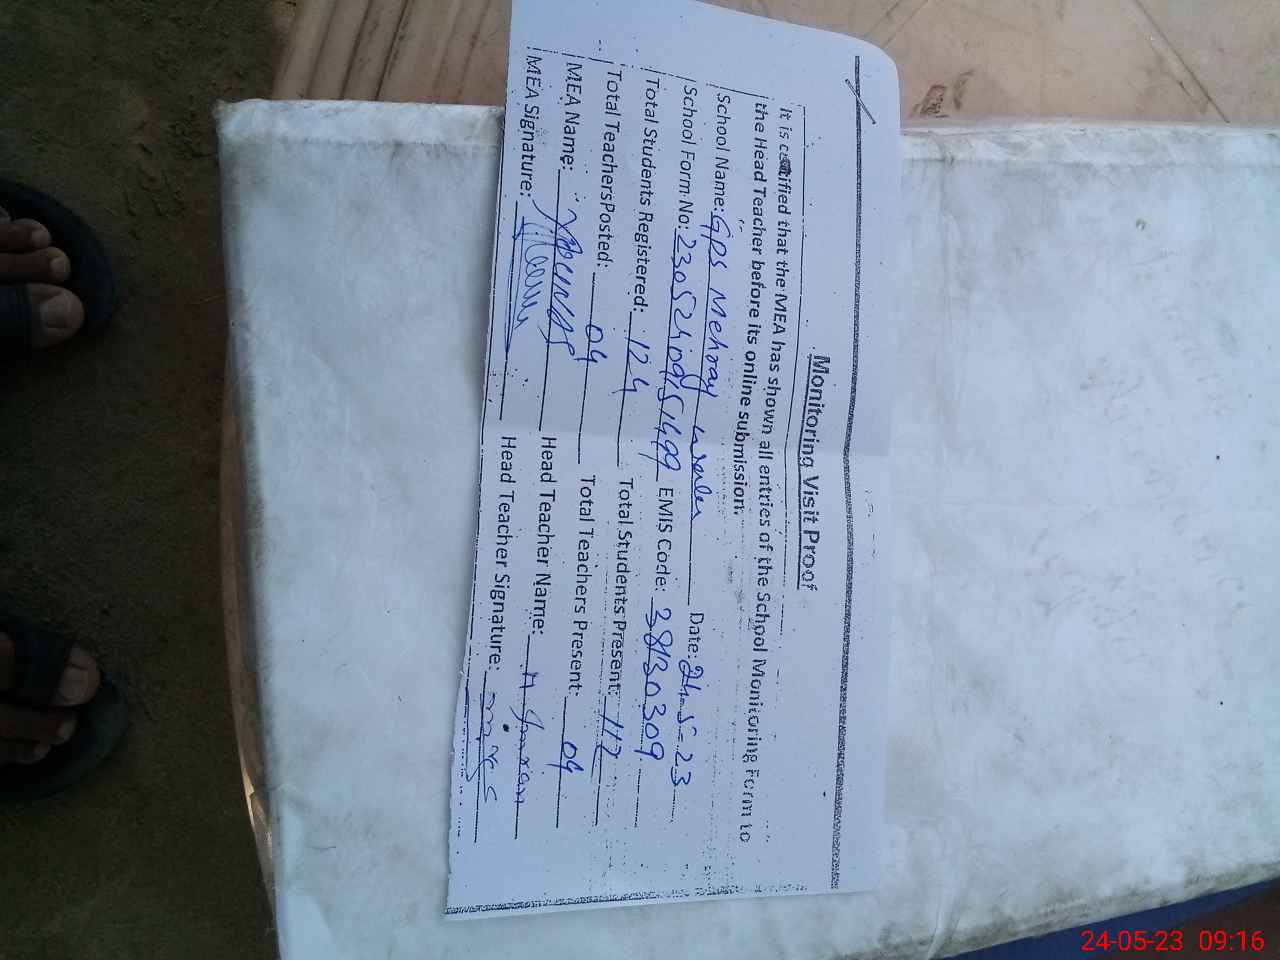 Monitoring Visit Proof
It is certified that the MEA has shown all entries of the School Monitoring Form to
the Head Teacher before its online submission.
School Name: GPS Mehray Date: 24-5-23
School Form No: EMIS Code: 38130309
Total Students Registered: 124 Total Students Present: 117
Total TeachersPosted: 04 Total Teachers Present: 04
MEA Name: Head Teacher Name: M. Imran
MEA Signature: Head Teacher Signature:
24-05-23 09:16